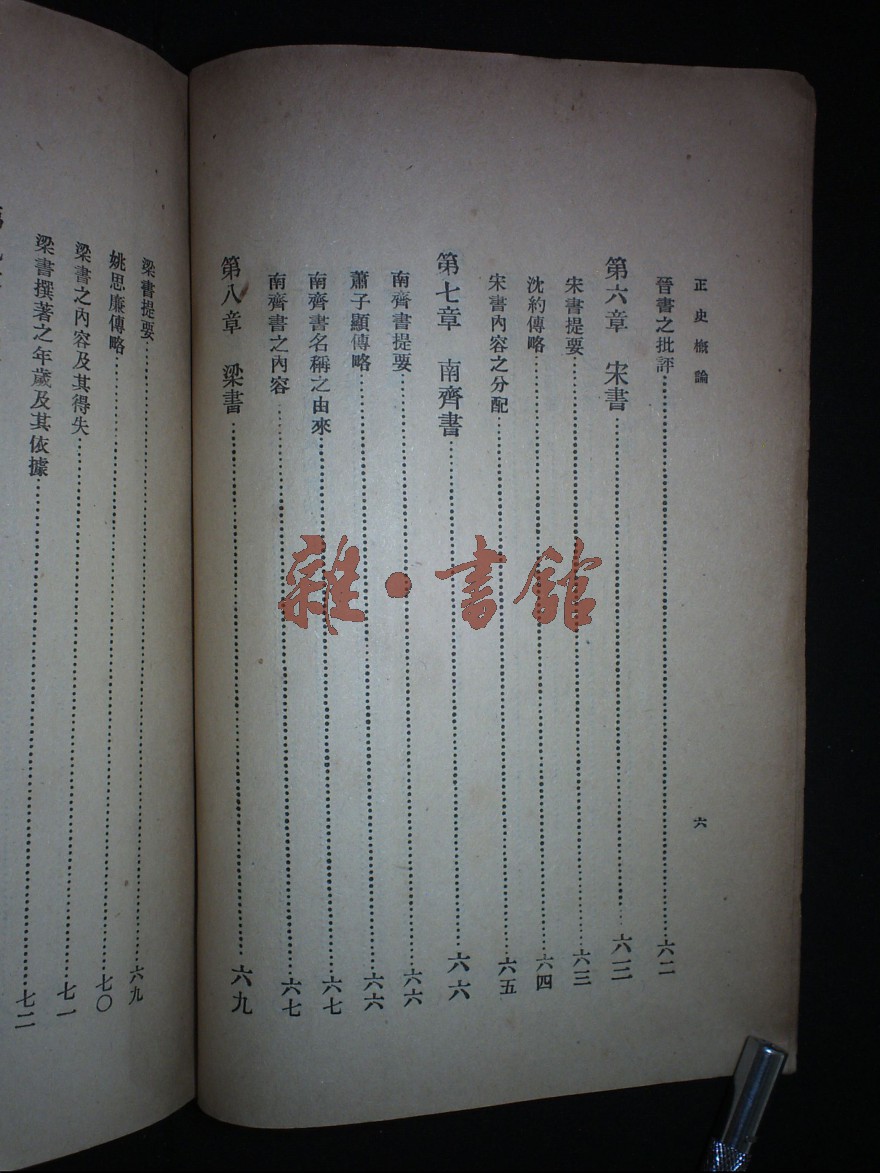 正史概論 六
晉書之批評……六二
第六章 宋書……六三
宋書提要……六三
沈約傳略……六四
宋書內容之分配……六五
第七章 南齊書……六六
南齊書提要……六六
蕭子顯傳略……六六
南齊書名稱之由來……六七
南齊書之內容……六七
第八章 梁書……六九
梁書提要……六九
姚思廉傳略……七〇
梁書之內容及其得失……七一
梁書撰著之年歲及其依據……七二
雜·書館